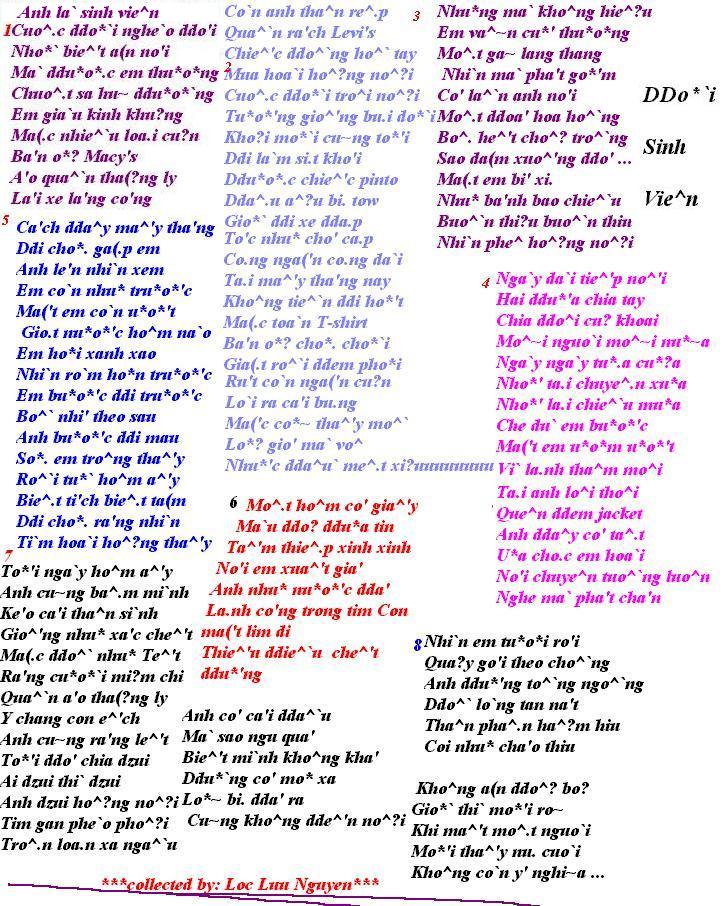 DDo*`i
Sinh
Vie^n
1
Anh la` sinh vie^n
Cuo^.c ddo*`i nghe`o ddo'i
Nho*` bie^'t a(n no'i
Ma` ddu*o*.c em thu*o*ng
Chuo^.t sa hu~ ddu*o*`ng
Em gia`u kinh khu?ng
Ma(.c nhie^`u loa.i cu?n
Ba'n o*? Macy's
A'o qua^`n tha(?ng ly
La'i xe la`ng co'ng
2
Co`n anh tha^n re^.p
Qua^`n ra'ch Levi's
Chie^'c ddo^`ng ho^` tay
Mua hoa`i ho^?ng no^?i
Cuo^.c ddo*`i tro^i no^?i
Tu*o*ng gio^'ng bu.i do*`i
Kho?i mo*`i cu~ng to*'i
Ddi la`m si.t kho'i
Ddu*o*.c chie^'c pinto
Dda^.u a^?u bi. tow
Gio*` ddi xe dda.p
To'c nhu* cho' ca.p
Co.ng nga('n co.ng da`i
Ta.i ma^'y tha'ng nay
Kho^ng tie^`n ddi ho*'t
Ma(.c toa`n T-shirt
Ba'n o*? cho*. cho*`i
Gia(.t ro^`i ddem pho*i
Ru't co`n nga('n cu?n
Lo`i ra ca'i bu.ng
Ma('c co*~ tha^'y mo^`
Lo*? gio' ma` vo^
Nhu*'c dda^u` me^.t xi?uuuuuuuuu
3
Nhu*ng ma` kho^ng hie^?u
Em va^~n cu*' thu*o*ng
Mo^.t ga~ lang thang
Nhi`n ma` pha't go*'m
Co' la^`n anh no'i
Mo^.t ddoa' hoa ho^`ng
Bo^. he^'t cho^? tro^`ng
Sao da(m xuo^'ng ddo' ...
Ma(.t em bi' xi.
Nhu* ba'nh bao chie^`u
Buo^`n thi?u buo^`n thiu
Nhi`n phe^ ho^?ng no^?i
4
Nga^y da`i tie^'p no^'i
Hai ddu*'a chia tay
Chia ddo^i cu? khoai
Mo^~i nguo`i mo^~i nu*~a
Nga`y nga`y tu*.a cu*?a
Nho*' ta.i chuye^.n xu*a
Nho*' la.i chie^`u mu*a
Che du` em bu*o*'c
Ma('t em u*o*m u*o*'t
Vi` la.nh tha^m mo^i
Ta.i anh lo^i tho^i
Que^n ddem jacket
Anh dda^y co' ta^.t
U*a cho.c em hoa`i
No'i chuye^n tuo^`ng luo^n
Nghe ma` pha't cha'n
5
Ca'ch dda^y ma^'y tha'ng
Ddi cho*. ga(.p em
Anh le'n nhi`n xem
Em co`n nhu* tru*o*'c
Ma('t em co`n u*o*'t
Gio.t nu*o*'c ho^m na`o
Em ho*i xanh xao
Nhi`n ro^m ho*n tru*o*'c
Em bu*o*'c ddi tru*o*'c
Bo^` nhi' theo sau
Anh bu*o*'c ddi mau
So*. em tro^ng tha^'y
Ro^`i tu*` ho^m a^'y
Bie^.t ti'ch bie^.t ta(m
Ddi cho*. ra'ng nhi`n
Ti`m hoa`i ho^?ng tha^'y
6
Mo^.t ho^m co' gia^'y
Ma`u ddo? ddu*a tin
Ta^'m thie^.p xinh xinh
No'i em xua^'t gia'
Anh nhu* nu*o*'c dda'
La.nh co'ng trong tim Con
ma('t lim di
Thie^'u ddie^`u che^'t
ddu*'ng
7
To*'i nga`y ho^m a^'y
Anh cu~ng ba^.m mi`nh
Ke'o ca'i tha^n si`nh
Gio^'ng nhu* xa'c che^'t
Ma(.c ddo^` nhu* Te^'t
Ra'ng cu*o*`i mi?m chi
Qua^`n a'o tha(?ng ly
Y chang con e^'ch
Anh cu~ng ra'ng le^'t
To*'i ddo' chia dzui
Ai dzui thi` dzui
Anh dzui ho^?ng no^?i
Tim gan phe`o pho^?i
Tro^.n loa.n xa nga^`u
Anh co' ca'i dda^`u
Ma` sao ngu qua'
Bie^'t mi`nh kho^ng kha'
Ddu*`ng co' mo* xa
Lo*~ bi. dda' ra
Cu~ng kho^ng dde^'n no^?i
8
Nhi`n em tu*o*i ro'i
Qua?y go'i theo cho^`ng
Anh ddu*'ng to^`ng ngo^`ng
Ddo^` lo`ng tan na't
Tha^n pha^.n ha^?m hiu
Coi nhu* cha'o thiu
Kho^ng a(n ddo^? bo?
Gio*` thi` mo*'i ro~
Khi ma^'t mo^.t nguo`i
Mo*'i tha^'y nu. cuo`i
Kho^ng co`n y' nghi~a ...
***collected by: Loc Luu Nguyen***